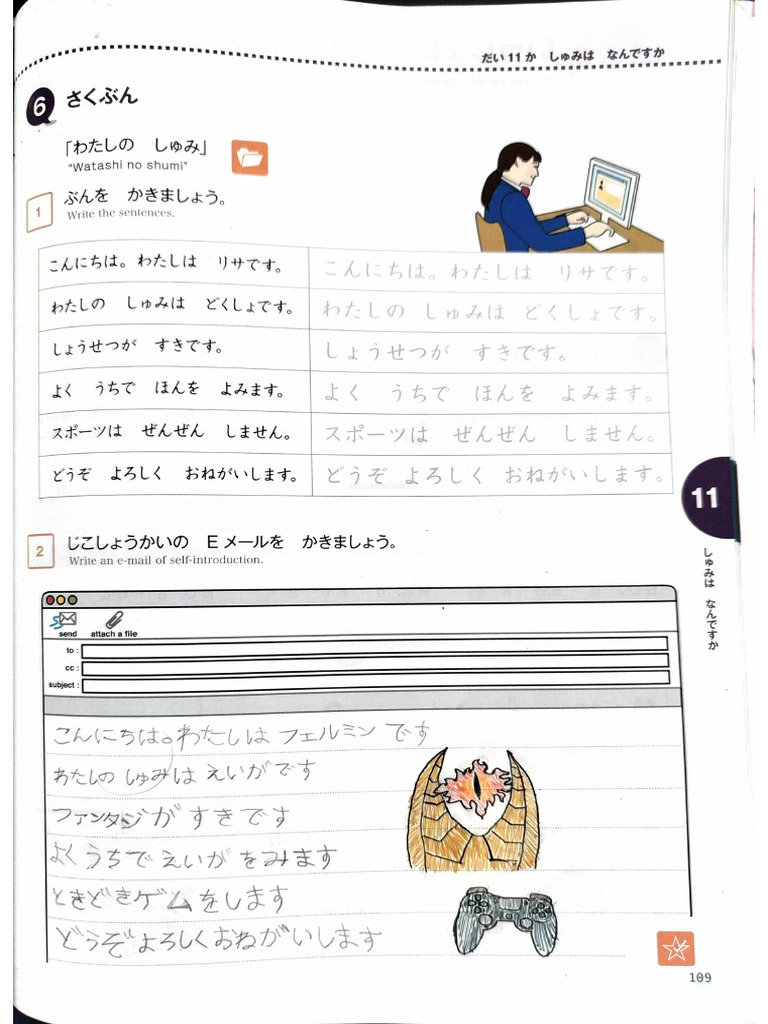 だい 11 か　しゅみは　なんですか
6 さくぶん
「わたしの　しゅみ」
"Watashi no shumi"
1 ぶんを　かきましょう。
Write the sentences.
こんにちは。わたしは　リサです。　こんにちは。わたしは　リサです。
わたしの　しゅみは　どくしょです。　わたしの　しゅみは　どくしょです。
しょうせつが　すきです。　しょうせつが　すきです。
よく　うちで　ほんを　よみます。　よく　うちで　ほんを　よみます。
スポーツは　ぜんぜん　しません。　スポーツは　ぜんぜん　しません。
どうぞ　よろしく　おねがいします。　どうぞ　よろしく　おねがいします。
11
しゅみは　なんですか
2 じこしょうかいの　Eメールを　かきましょう。
Write an e-mail of self-introduction.
send　attach a file
to :
cc :
subject :
こんにちは。わたしは フェルミン です
わたしの しゅみは えいがです
ファンタジが すきです
よく うちで えいが をみます
ときどきゲムをします
どうぞ よろしく おねがいします
109